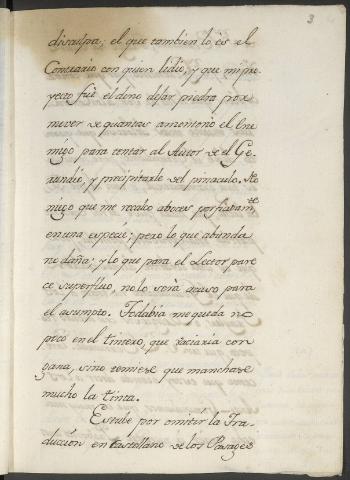 3
disculpa; el que tambien lo es el
Contrario con quien lidio, y que mi pro
yecto fuè el dino dejar piedra por re
mover de quantas amontonó el Ene
migo para tentar al Autor de el Ge-
rundio, y precipitarle del pinaculo. No
niego que me recalco à veces porfiadam.te
en una especie; pero lo que abunda
no daña; y lo que para el Lector pare
ce superfluo, no lo serà acaso para
el asumpto. Todabia me queda no
poco en el tintero, que vaciaria con
gana, sino temiese que manchase
mucho la tinta.
Estube por omitir la Tra-
duccion en Castellano de los Pasages